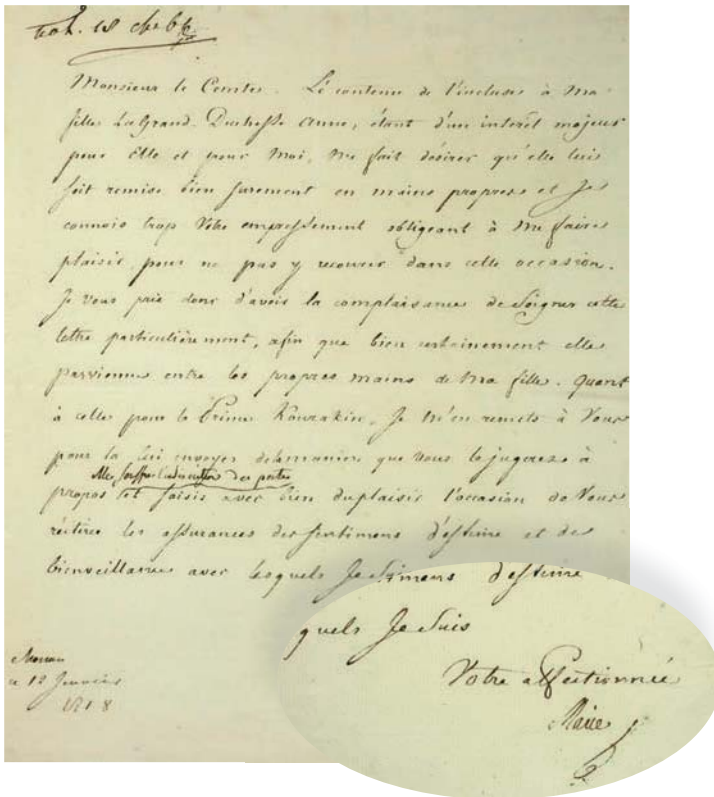 Monsieur le Comte. Le contenu de l'incluse à Ma
fille La Grand-Duchesse Anne, étant d'un interêt majeur
pour Elle et pour Moi, Me fait désirer qu'elle lui
soit remise bien surement en mains propres et Je
connois trop Votre empressement obligeant à Me faire
plaisir, pour ne pas y recourir dans cette occasion.
Je vous prie donc d'avoir la complaisance de Soigner cette
lettre particulièrement, afin que bien certainement elle
parvienne entre les propres mains de Ma fille. Quant
à celle pour le Prince Kourakin, Je M'en remets à Vous
pour la lui envoyer de la maniere que Vous le jugerez à
propos et saisis avec bien du plaisir l'occasion de Vous
réitérer les assurances des sentimens d'estime et de
bienveillance avec lesquels Je Suis
timens d'estime
quels Je Suis
Votre affectionnée
Marie
Moscou
12 Janvier
1818